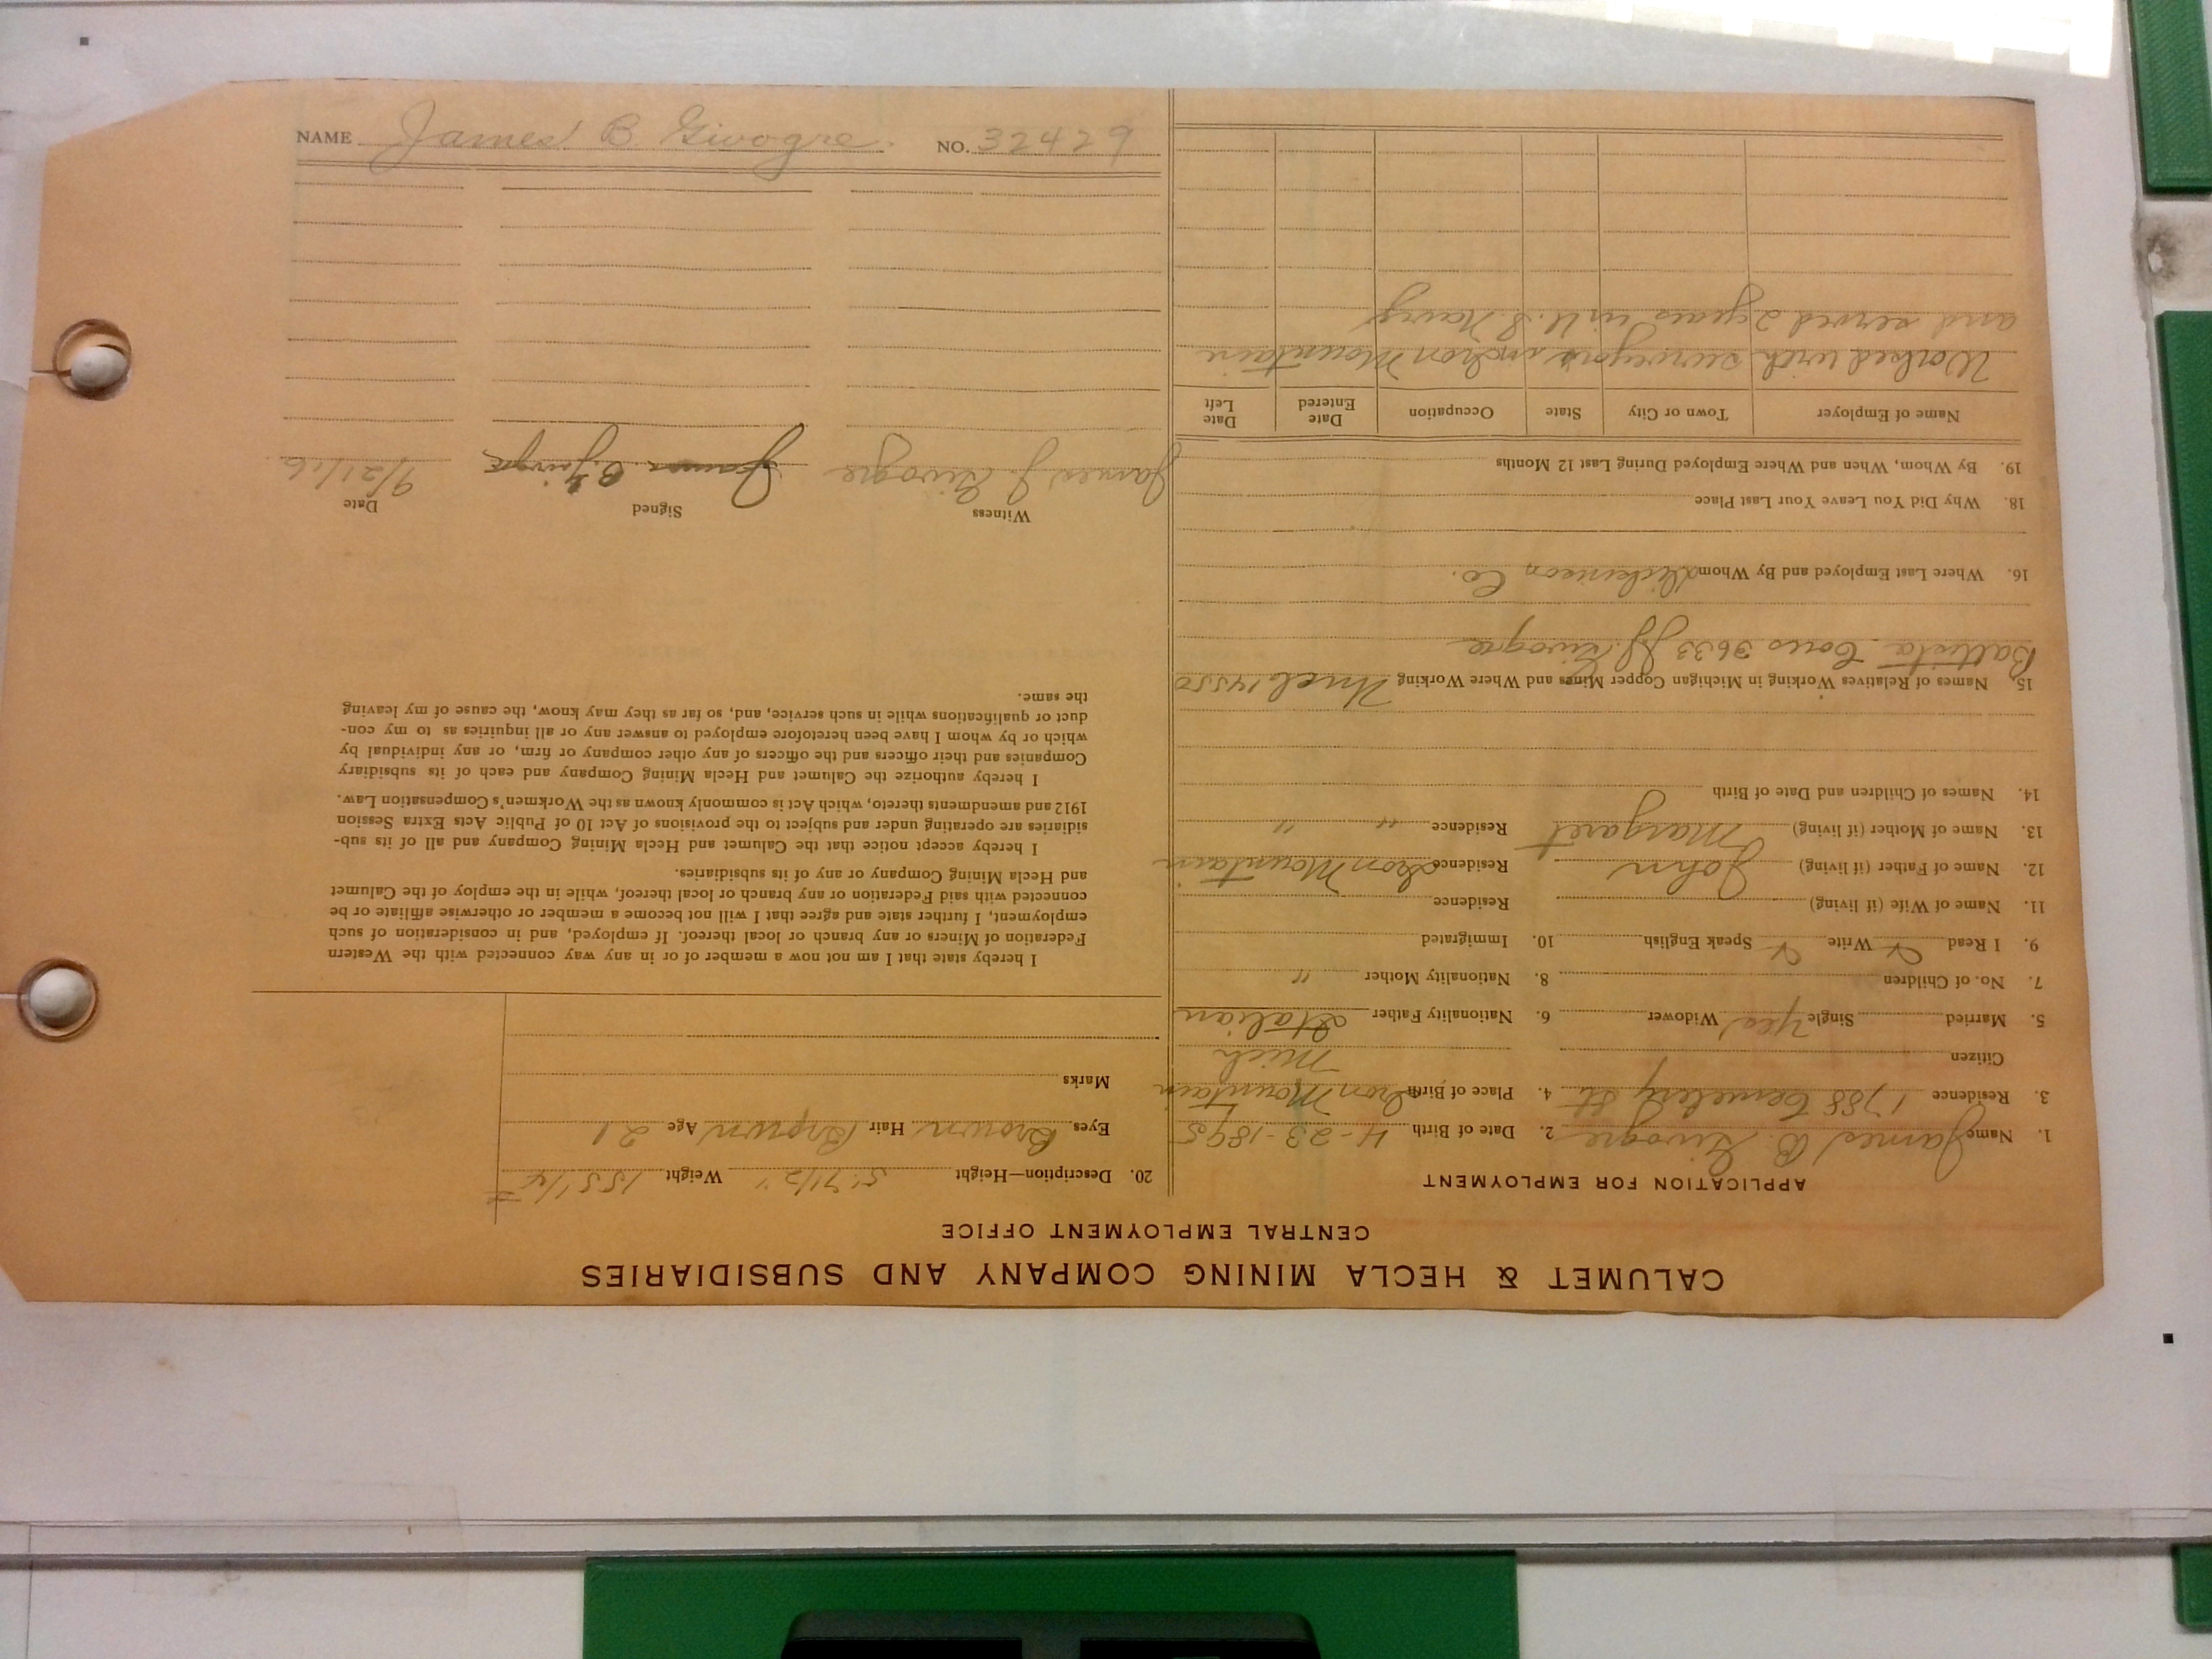 CALUMET & HECLA MINING COMPANY AND SUBSIDIARIES
CENTRAL EMPLOYMENT OFFICE
APPLICATION FOR EMPLOYMENT
1. Name James B. Givogre 2. Date of Birth 4-23-1895
3. Residence 1788 Cemetery St. 4. Place of Birth Iron Mountain
Citizen Mich
5. Married Single Yes Widower 6. Nationality Father Italian
7. No. of Children 8. Nationality Mother "
9. I Read Write Speak English 10. Immigrated
11. Name of Wife (if living) Residence
12. Name of Father (if living) John Residence Iron Mountain
13. Name of Mother (if living) Margaret Residence " "
14. Names of Children and Date of Birth
15. Names of Relatives Working in Michigan Copper Mines and Where Working Uncle 14550
Battista 3633 Givogre
16. Where Last Employed and By Whom Dickinson Co.
18. Why Did You Leave Your Last Place
19. By Whom, When and Where Employed During Last 12 Months
Name of Employer Town or City State Occupation Date Entered Date Left
Worked with surveyors in Iron Mountain
and served 2 years in U.S. Navy
20. Description—Height 5' 7 1/2" Weight 155 1/4 #
Eyes Brown Hair Brown Age 21
Marks
I hereby state that I am not now a member of or in any way connected with the Western
Federation of Miners or any branch or local thereof. If employed, and in consideration of such
employment, I further state and agree that I will not become a member or otherwise affiliate or be
connected with said Federation or any branch or local thereof, while in the employ of the Calumet
and Hecla Mining Company or any of its subsidiaries.
I hereby accept notice that the Calumet and Hecla Mining Company and all of its sub-
sidiaries are operating under and subject to the provisions of Act 10 of Public Acts Extra Session
1912 and amendments thereto, which Act is commonly known as the Workmen's Compensation Law.
I hereby authorize the Calumet and Hecla Mining Company and each of its subsidiary
Companies and their officers and the officers of any other company or firm, or any individual by
which or by whom I have been heretofore employed to answer any or all inquiries as to my con-
duct or qualifications while in such service, and, so far as they may know, the cause of my leaving
the same.
Witness Signed Date
James J. Givogre James B. Givogre 9/21/16
NAME James B. Givogre. NO. 32429